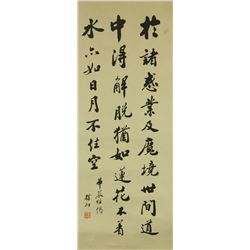 於諸惑業及魔境世間道
中得解脫猶如蓮花不著
水亦如日月不住空
華嚴經偈